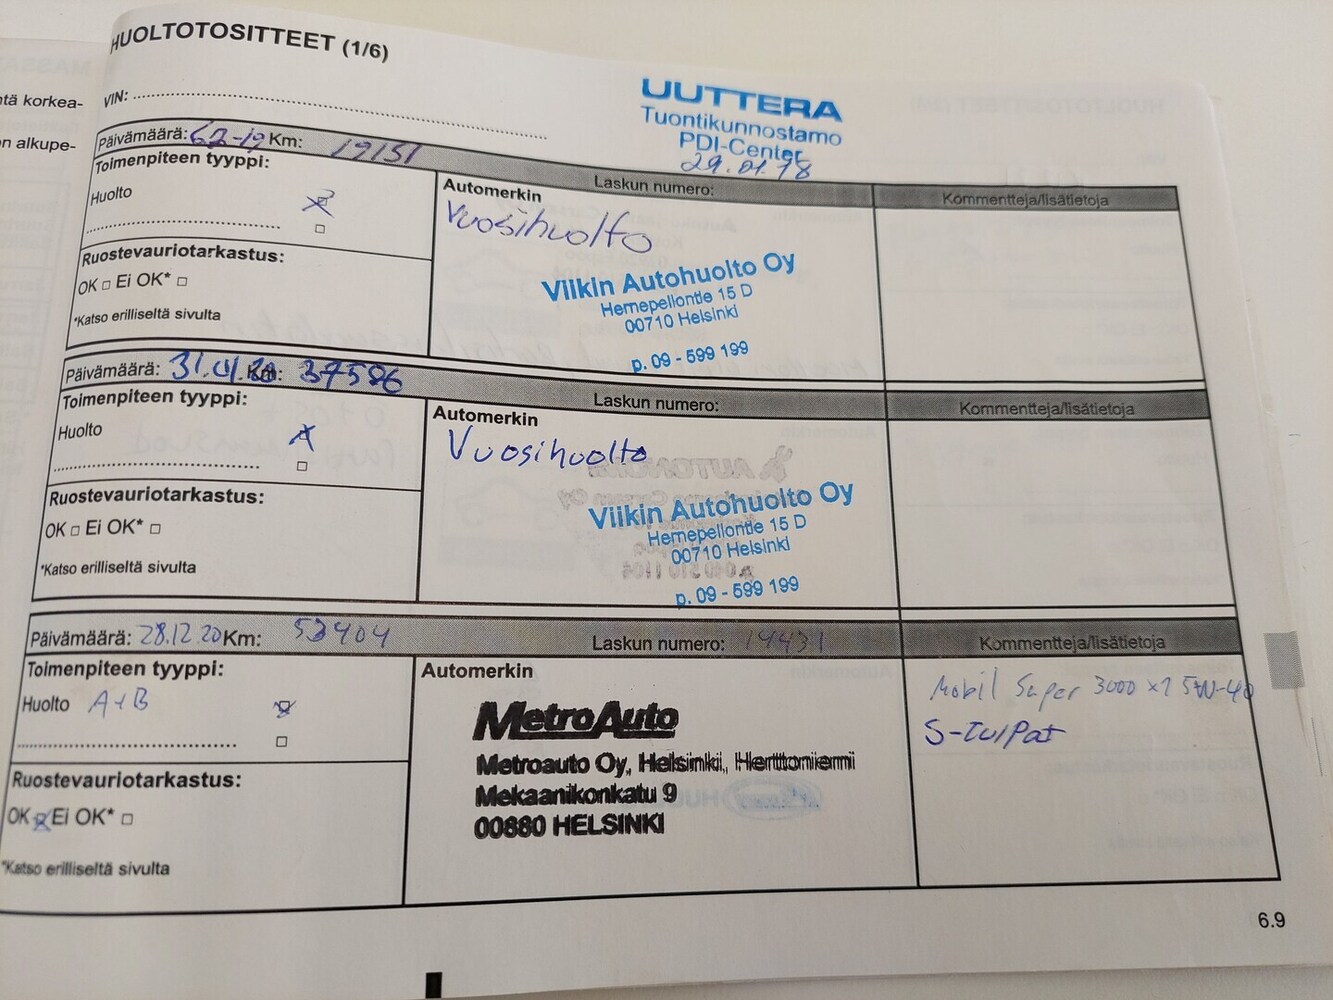 HUOLTOTOSITTEET (1/6)
VIN:
ntä korkea-
n alkupe-
UUTTERA
Tuontikunnostamo
PDI-Center
29.01.18
Päivämäärä: 6.2-19 Km: 19151
Laskun numero:
Kommentteja/lisätietoja
Toimenpiteen tyyppi:
Huolto
Automerkin
Vuosihuolto
Viikin Autohuolto Oy
Hernepellontie 15 D
00710 Helsinki
p. 09 - 599 199
Ruostevauriotarkastus:
OK □ Ei OK* □
*Katso erilliseltä sivulta
Päivämäärä: 31.01.20 Km: 37586
Laskun numero:
Kommentteja/lisätietoja
Toimenpiteen tyyppi:
Huolto
Automerkin
Vuosihuolto
Viikin Autohuolto Oy
Hernepellontie 15 D
00710 Helsinki
p. 09 - 599 199
Ruostevauriotarkastus:
OK □ Ei OK* □
*Katso erilliseltä sivulta
Päivämäärä: 28.12.20 Km: 53404
Laskun numero: 14431
Kommentteja/lisätietoja
Toimenpiteen tyyppi:
Huolto A+B
Automerkin
MetroAuto
Metroauto Oy, Helsinki, Herttoniemi
Mekaanikonkatu 9
00880 HELSINKI
Mobil Super 3000 x1 5W-40
Ruostevauriotarkastus:
OK Ei OK* □
*Katso erilliseltä sivulta
6.9